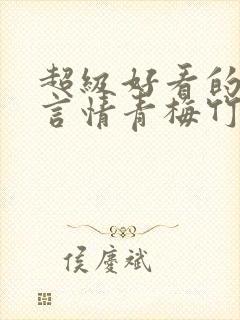 超級好看的
言情青梅竹
侯慶斌